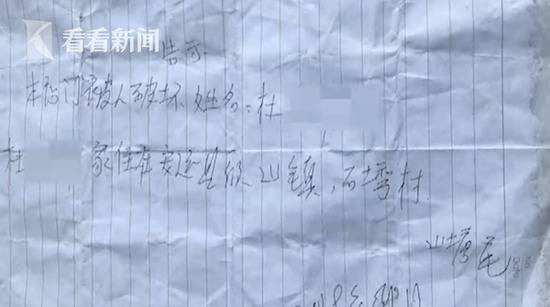 看看新闻
告示
本房门被人破坏 姓名:杜
杜 家住在安远县欣山镇,石湾村
山塘尾